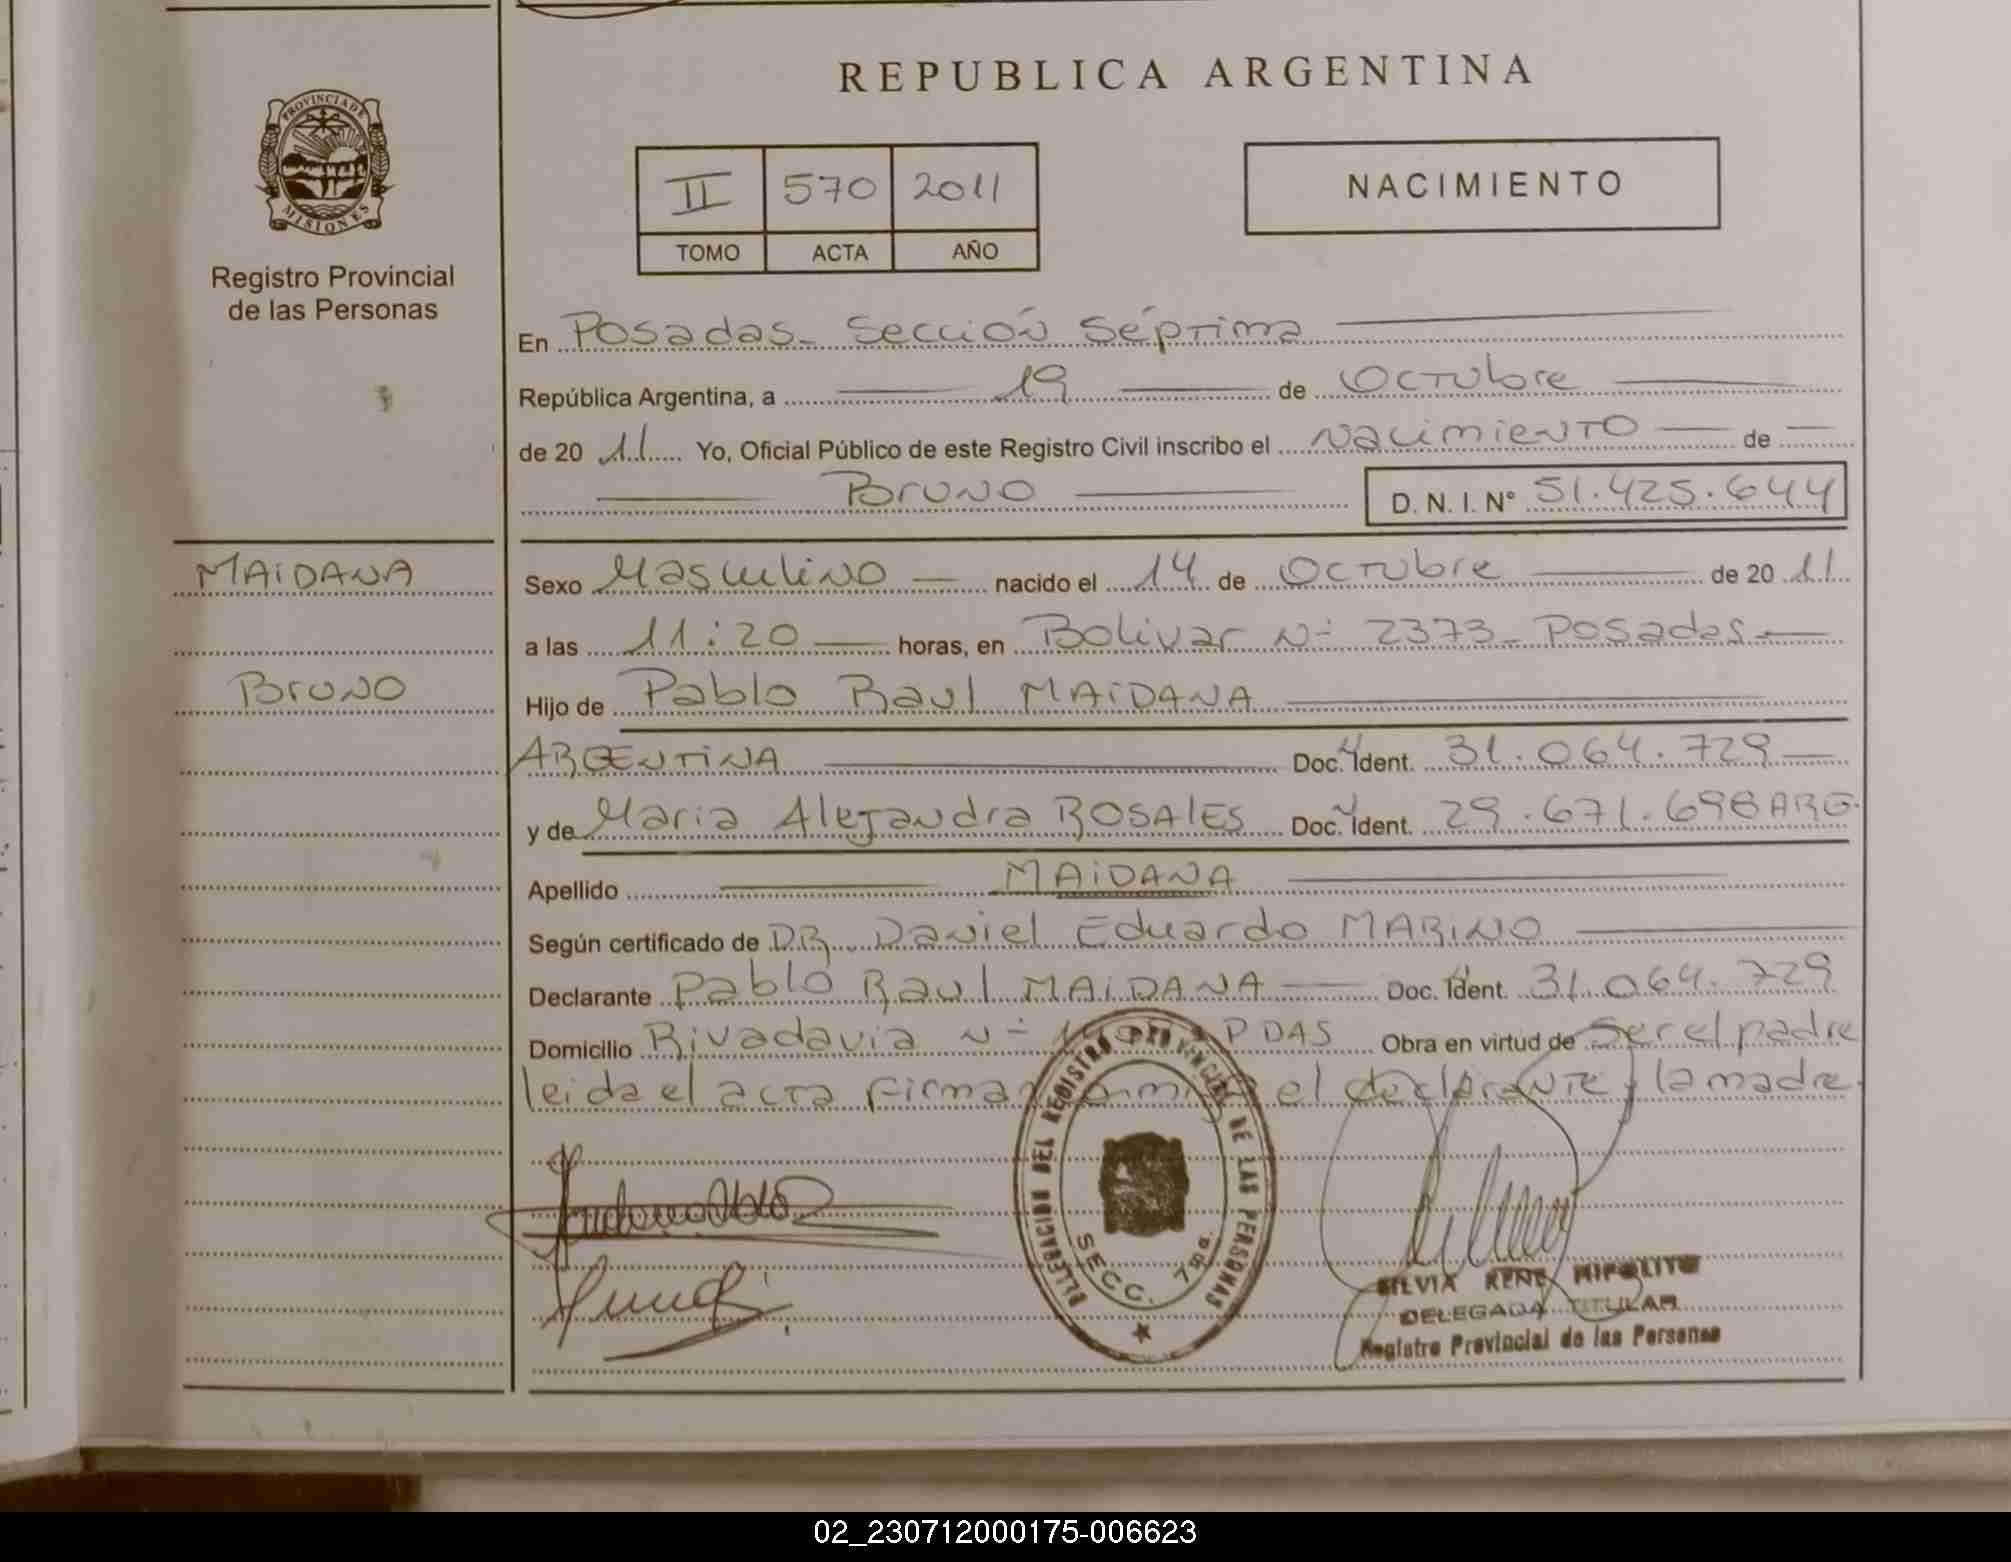 REPUBLICA ARGENTINA
PROVINCIA DE
MISIONES
Registro Provincial
de las Personas
II 570 2011
TOMO ACTA AÑO
NACIMIENTO
En Posadas - Sección Séptima
República Argentina, a 19 de Octubre
de 20 11 Yo, Oficial Público de este Registro Civil inscribo el Nacimiento de
Bruno D. N. I. N° 51.425.644
MAIDANA
Bruno
Sexo Masculino nacido el 14 de Octubre de 20 11
a las 11:20 horas, en Bolivar N° 2373 - Posadas -
Hijo de Pablo Raul MAIDANA
ARGENTINA Doc. Ident. 31.064.729
y de Maria Alejandra ROSALES Doc. Ident. 29.671.698 ARG.
Apellido MAIDANA
Según certificado de DR. Daniel Eduardo MARINO
Declarante Pablo Raul MAIDANA Doc. Ident. 31.064.729
Domicilio Rivadavia N° PDAS Obra en virtud de ser el padre
leida el acta firman el declarante y la madre.
DELEGACION DEL REGISTRO PROVINCIAL DE LAS PERSONAS
SECC. 7ma.
SILVIA RENE HIPOLITO
DELEGADA TITULAR
Registro Provincial de las Personas
02_230712000175-006623